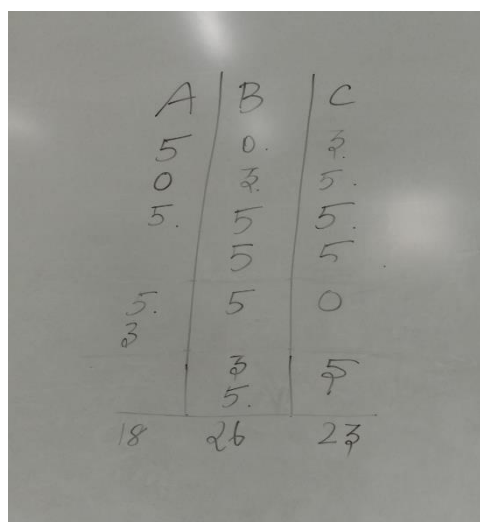 A B C
5 0. 3.
0 3. 5.
5. 5 5.
5 5
5. 5 0
3
3 5
5.
18 26 23